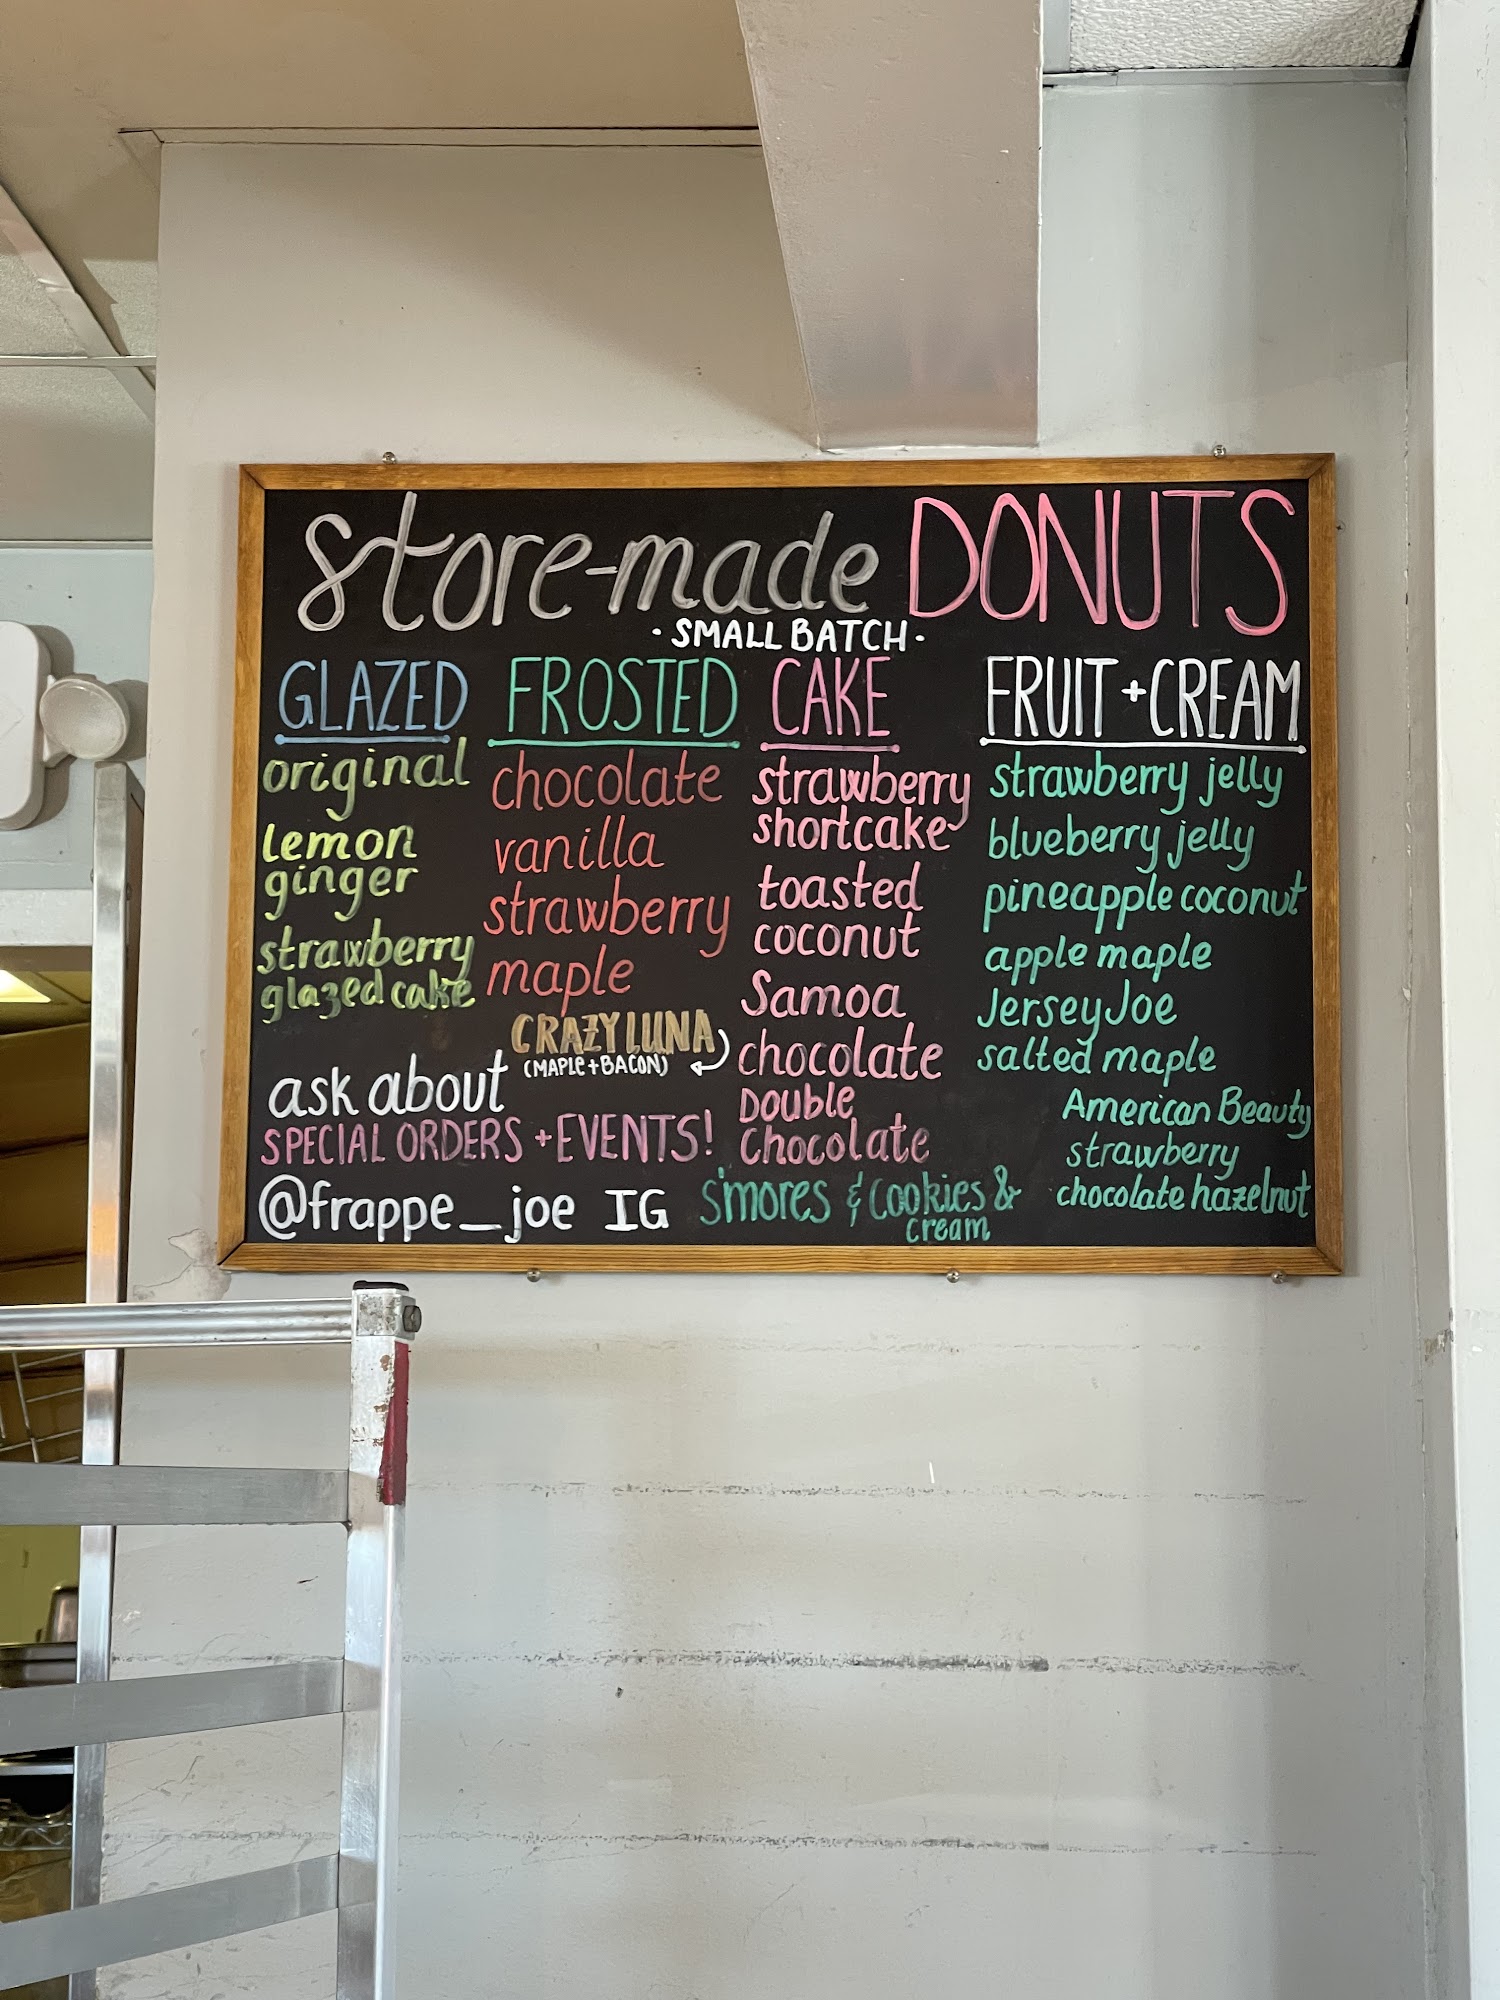 store-made DONUTS
·SMALL BATCH·
GLAZED
original
lemon
ginger
strawberry
glazed cake
FROSTED
chocolate
vanilla
strawberry
maple
CRAZY LUNA
(MAPLE+BACON)
CAKE
strawberry
shortcake
toasted
coconut
Samoa
chocolate
DOUBLE
Chocolate
S'mores & Cookies &
cream
FRUIT+CREAM
strawberry jelly
blueberry jelly
pineapple coconut
apple maple
Jersey Joe
salted maple
American Beauty
strawberry
chocolate hazelnut
ask about
SPECIAL ORDERS + EVENTS!
@frappe_joe IG